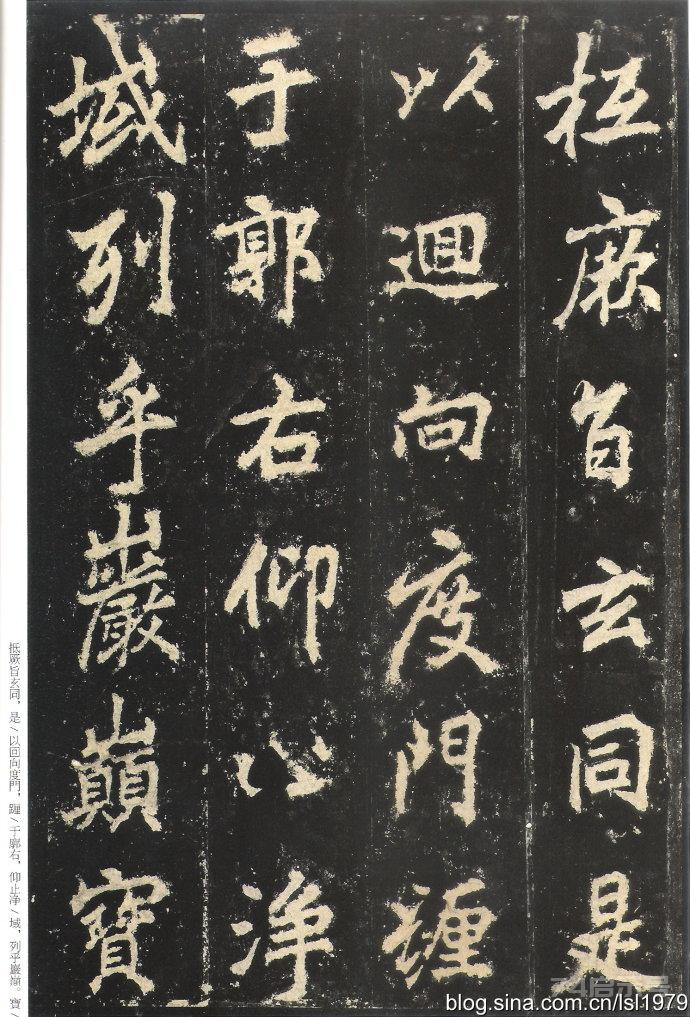 抵厥旨玄同是
以迴向度門躔
于郭右仰止淨
域列乎巖巔寶
抵厥旨玄同，是/以回向度門，躔/于郭右，仰止净/域，列乎巖巔。寶/
blog.sina.com.cn/lsl1979